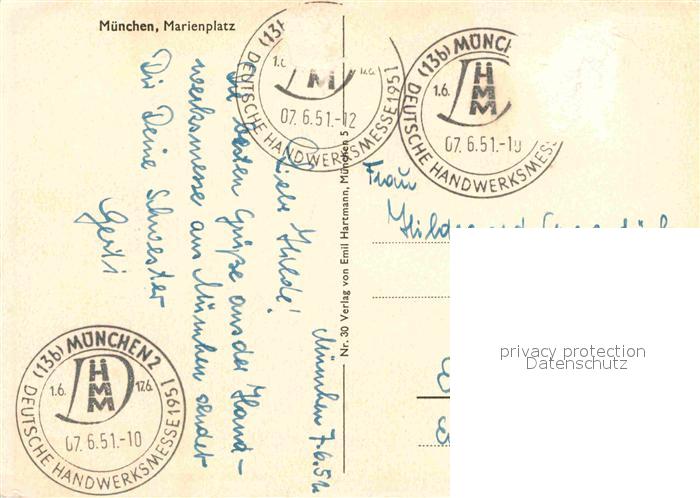 München, Marienplatz
München 7.6.51
Liebe Hilde!
Die besten Grüße aus der Hand-
werksmesse aus München sendet
Dir Deine Schwester
Gerti
Nr. 30 Verlag von Emil Hartmann, München 5
(13b
1.6. 17.6.
M
07.6.51.-12
DEUTSCHE HANDWERKSMESSE 1951
(13b) MÜNCH
1.6.
D
HMM
07.6.51.-10
DEUTSCHE HANDWERKSMESSE
(13b) MÜNCHEN 2
1.6. 17.6.
D
HMM
07.6.51.-10
DEUTSCHE HANDWERKSMESSE 1951
Frau
privacy protection
Datenschutz